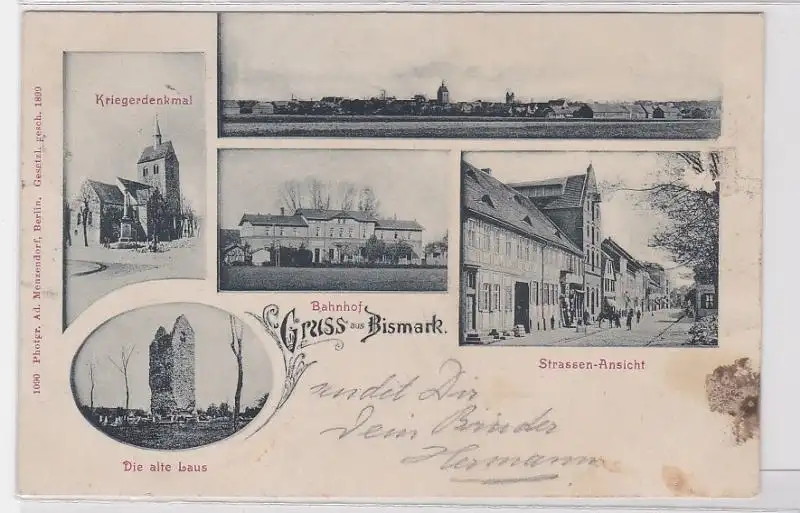 Kriegerdenkmal
1090 Photgr. Ad. Menzendorf, Berlin. Gesetzl. gesch. 1899
Bahnhof
Gruss aus Bismark.
Strassen-Ansicht
Die alte Laus
sendet Dir
Dein Bruder
Hermann